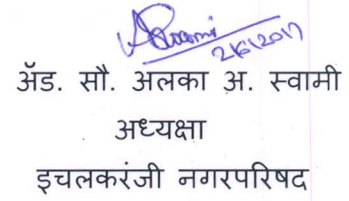 2/6/2017
ॲड. सौ. अलका अ. स्वामी
अध्यक्षा
इचलकरंजी नगरपरिषद